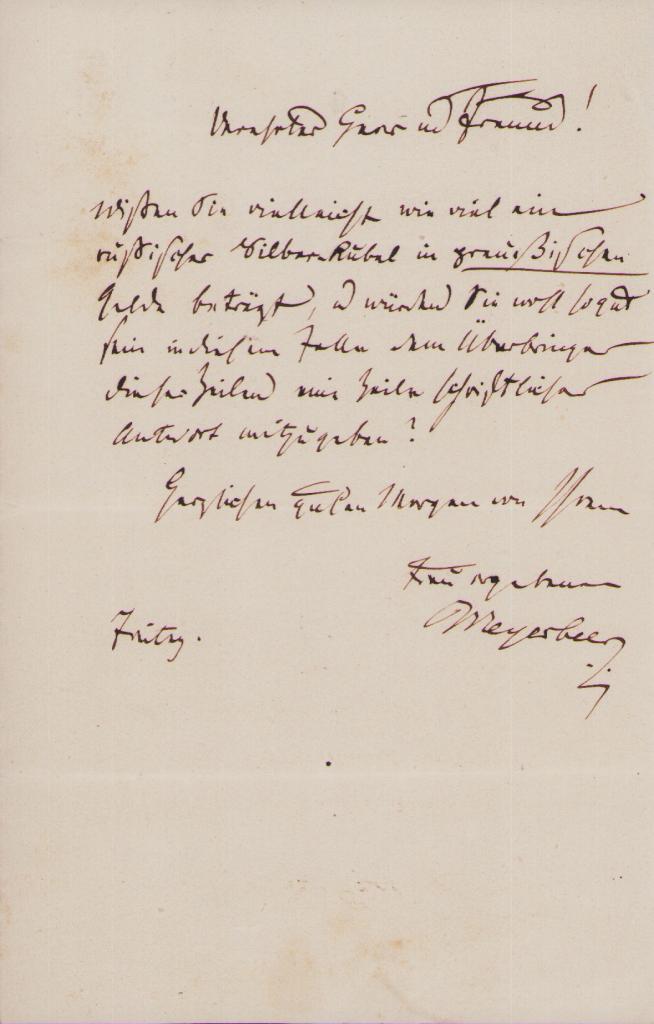 Verehrter Herr und Freund!
Wißen Sie vielleicht wie viel ein
rußischer Silber-Rubel in preußischen
Gelde beträgt, u würden Sie wohl so gut
sein in diesem Falle dem Überbringer
dieser Zeilen eine Zeile schriftlicher
Antwort mitzugeben?
Herzlichen guten Morgen von Ihrem
treu ergebenen
Meyerbeer
Freitag.